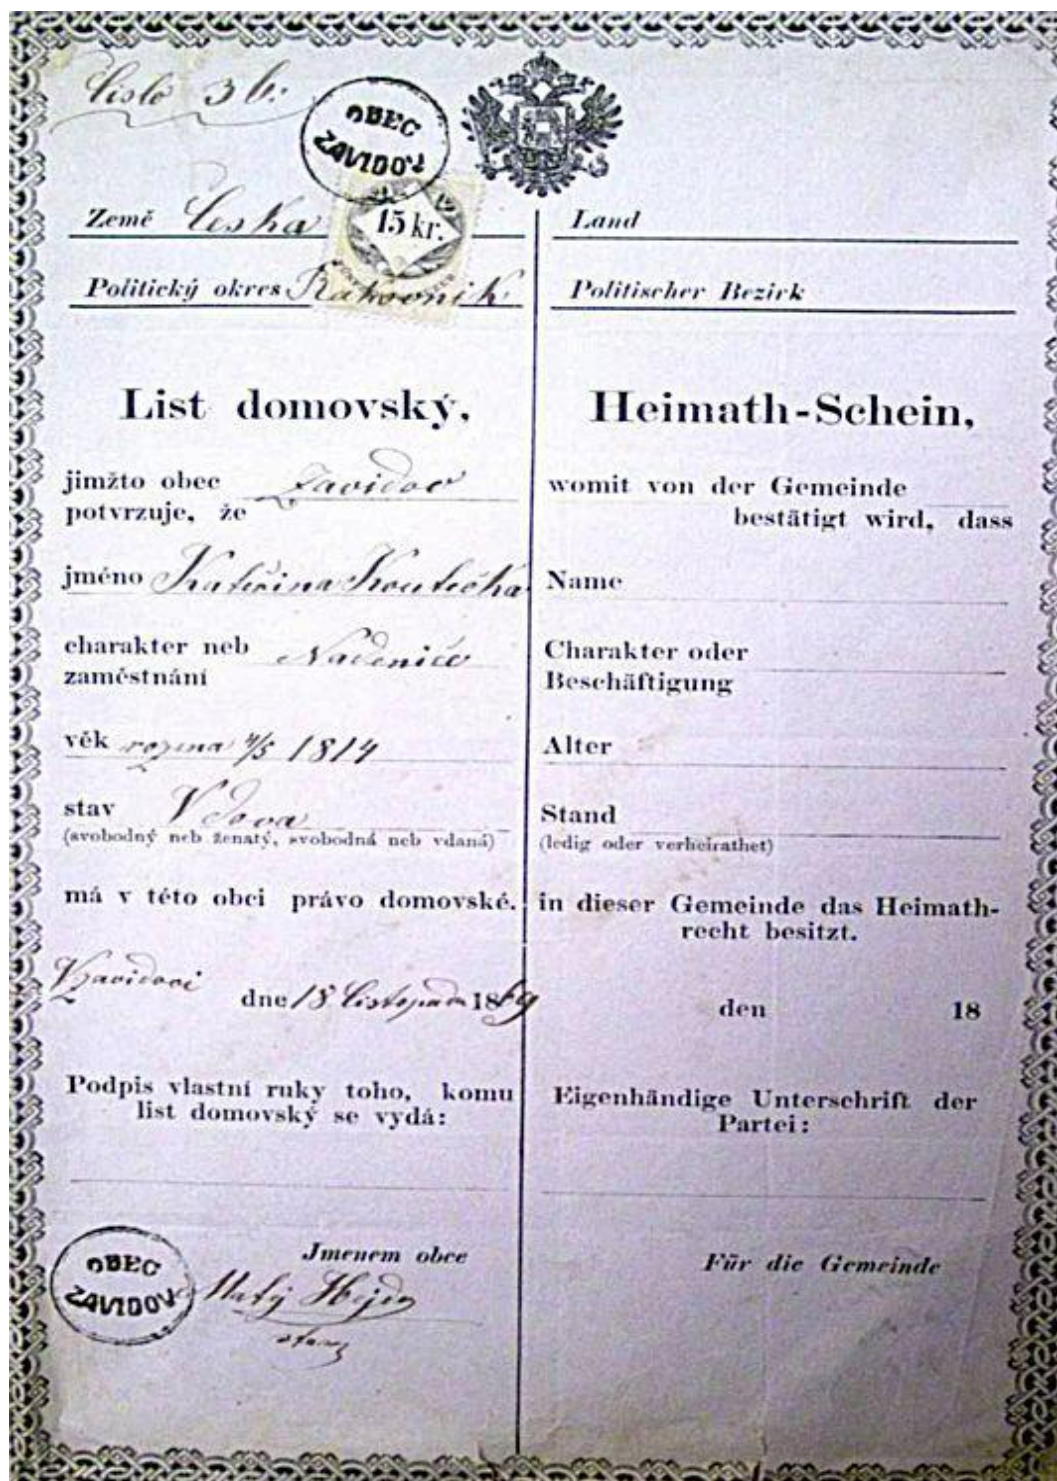 Číslo 36.
OBEC
ZAVIDOV
15 kr.
Země Česká
Politický okres Rakovník
List domovský,
jimžto obec Zavidov
potvrzuje, že
jméno Kateřina Koutecká
charakter neb Nádenice
zaměstnání
věk 4/5 1814
stav Vdova
(svobodný neb ženatý, svobodná neb vdaná)
má v této obci právo domovské.
V Zavidovi
dne 18 listopadu 1869
Podpis vlastní ruky toho, komu
list domovský se vydá:
Jmenem obce
OBEC
ZAVIDOV
Land
Politischer Bezirk
Heimath-Schein,
womit von der Gemeinde
bestätigt wird, dass
Name
Charakter oder
Beschäftigung
Alter
Stand
(ledig oder verheirathet)
in dieser Gemeinde das Heimath-
recht besitzt.
den 18
Eigenhändige Unterschrift der
Partei:
Für die Gemeinde